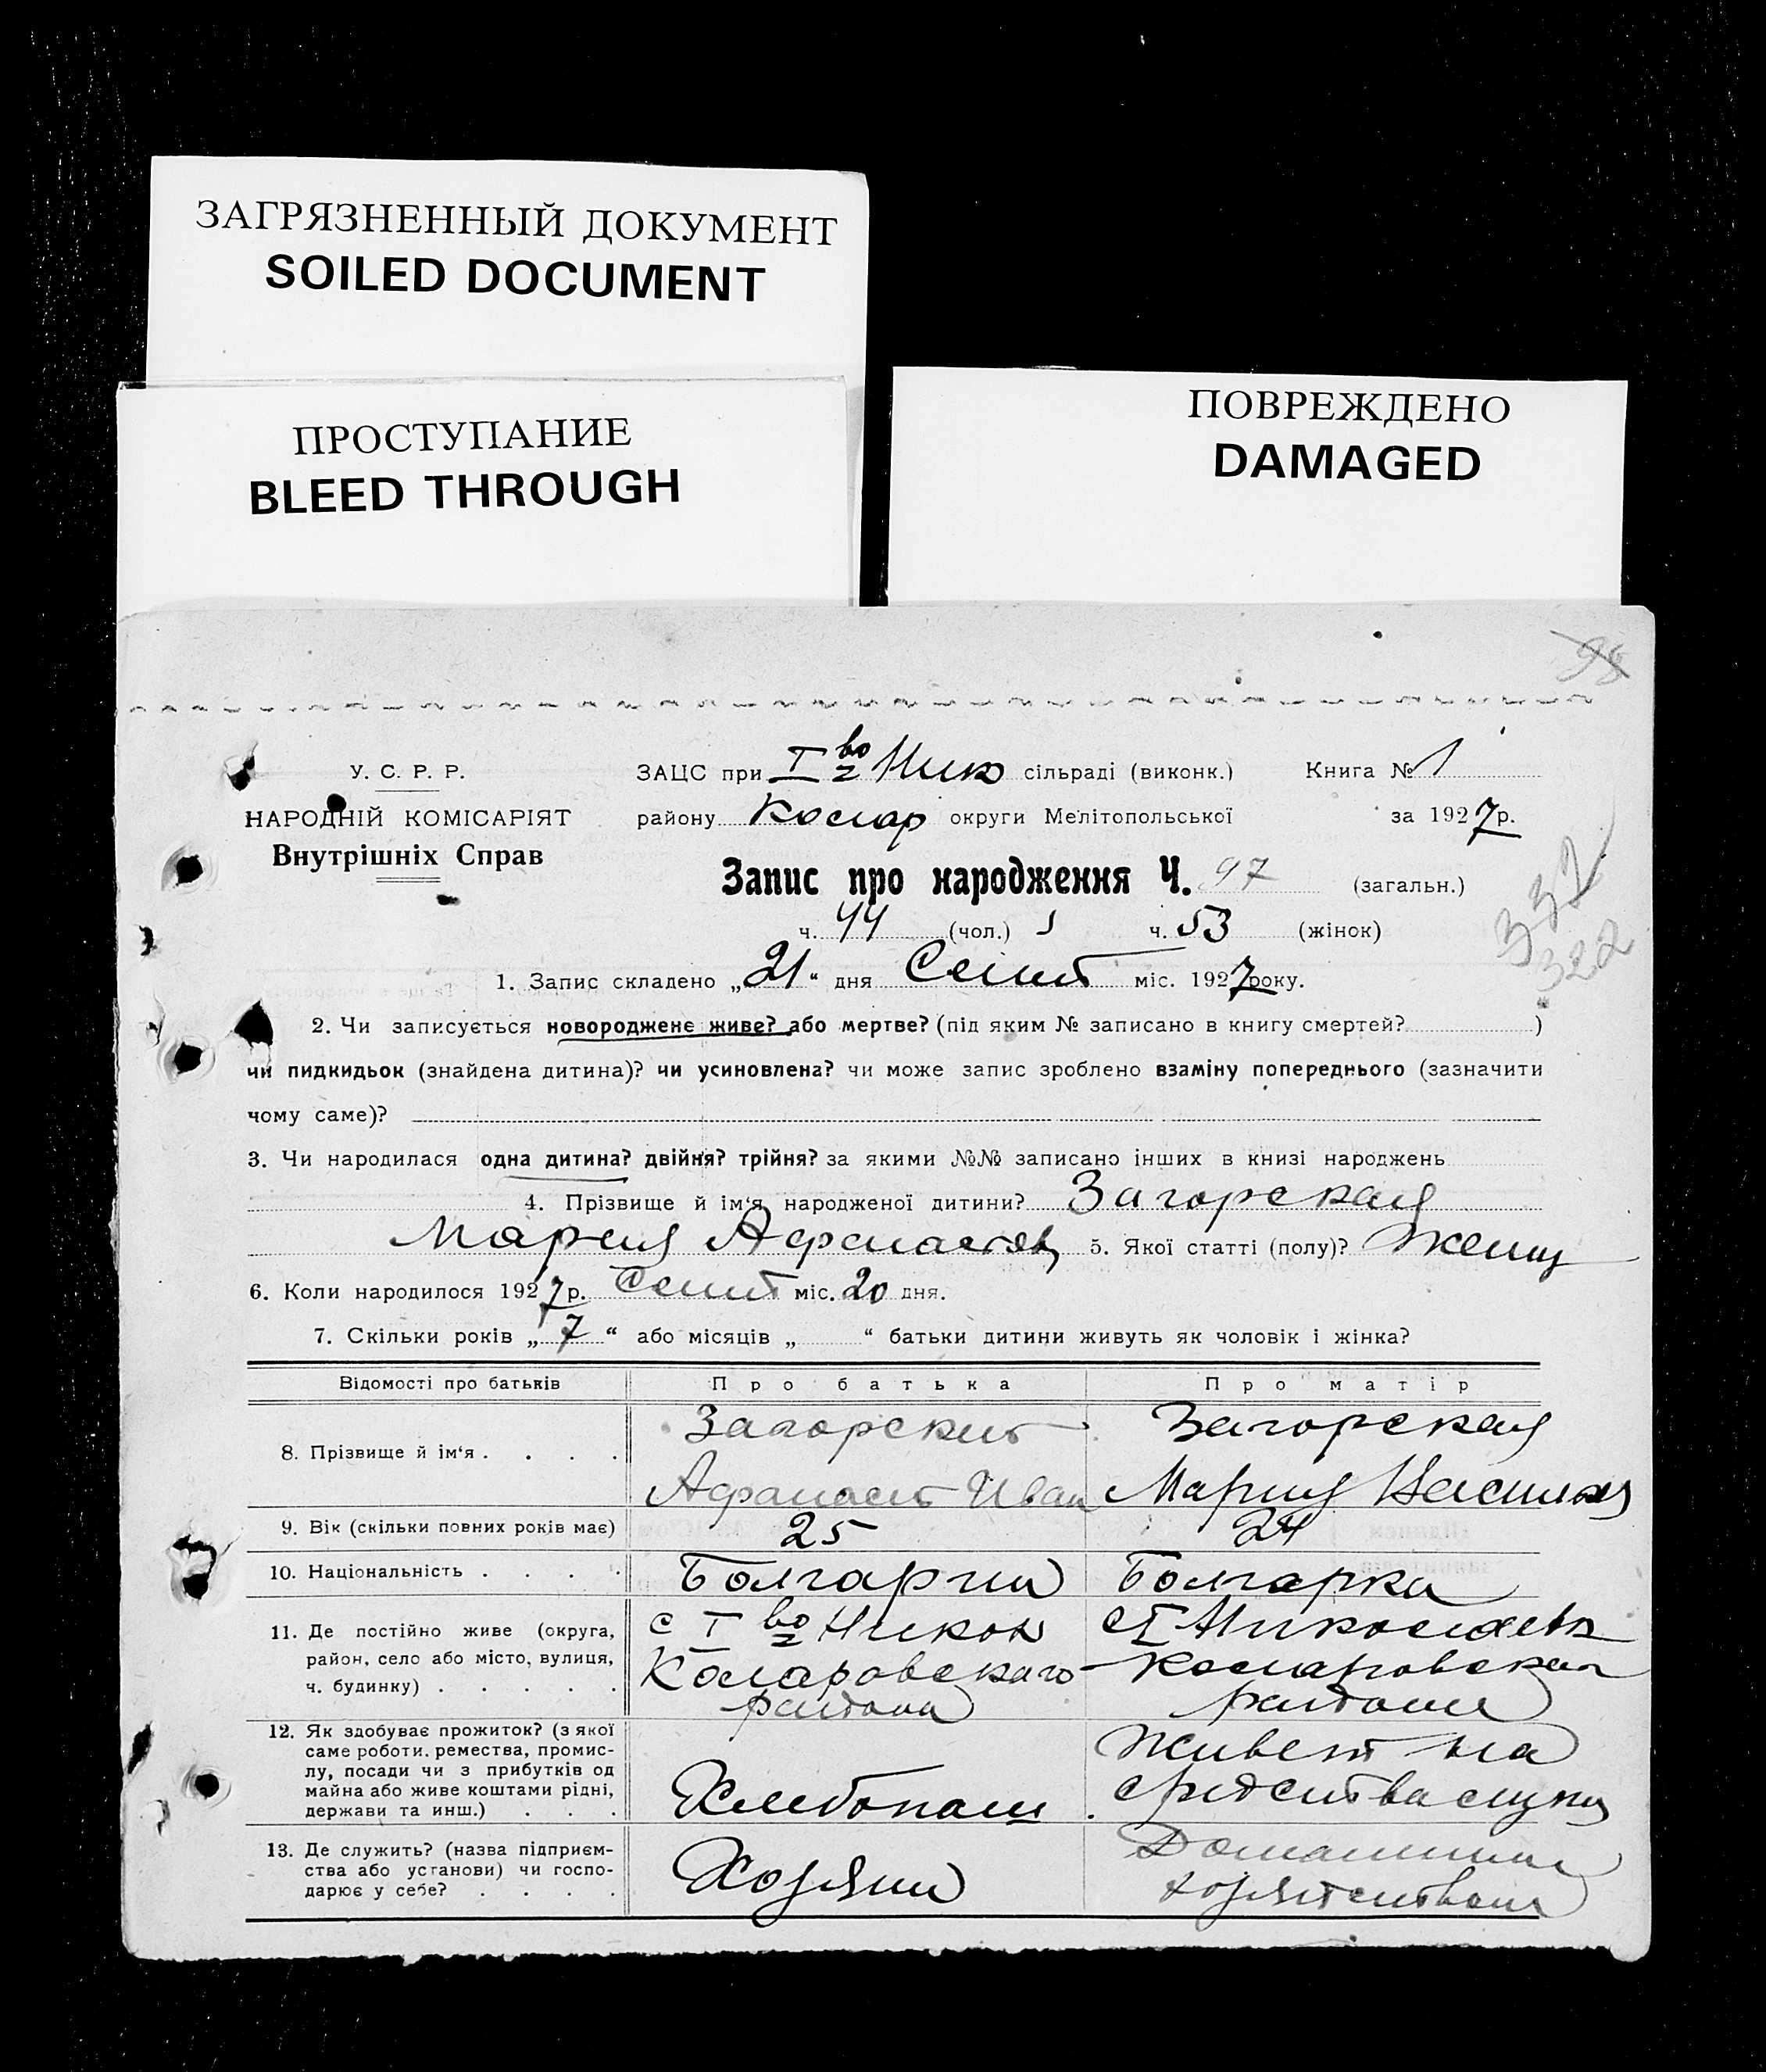 ЗАГРЯЗНЕННЫЙ ДОКУМЕНТ
SOILED DOCUMENT
ПРОСТУПАНИЕ
BLEED THROUGH
ПОВРЕЖДЕНО
DAMAGED
98
У. С. Р. Р.
НАРОДНІЙ КОМІСАРІЯТ
Внутрішніх Справ
ЗАЦС при I во Ник сільраді (виконк.) Книга № 1
району Колар округи Мелітопольської за 1927р.
Запис про народження Ч. 97 (загальн.)
332
322
ч. 44 (чол.) ч. 53 (жінок)
1. Запис складено „21“ дня Сент міс. 1927року.
2. Чи записується новороджене живе? або мертве? (під яким № записано в книгу смертей? )
чи пидкидьок (знайдена дитина)? чи усиновлена? чи може запис зроблено взаміну попереднього (зазначити
чому саме)?
3. Чи народилася одна дитина? двійня? трійня? за якими №№ записано інших в книзі народжень
4. Прізвище й ім‘я народженої дитини? Загорская
Мария Афанасьев 5. Якої статті (полу)? женщ
6. Коли народилося 1927р. Сент міс. 20 дня.
7. Скільки років „7“ або місяців „ “ батьки дитини живуть як чоловік і жінка?
Відомості про батьків Про батька Про матір
8. Прізвище й ім‘я . . . . Загорский Загорская
Афанасий Иван Мария Василье
9. Вік (скільки повних років має) 25 24
10. Національність . . . . Болгарин Болгарка
11. Де постійно живе (округа, с I во Никол с I Николаевк
район, село або місто, вулиця, Коларовского Коларовского
ч. будинку) . . . . . района района
12. Як здобуває прожиток? (з якої Живет на
саме роботи. ремества, промис-
лу, посади чи з прибутків од
майна або живе коштами рідні, Хлебопаш средства мужа
держави та инш.) . . .
13. Де служить? (назва підприєм- Домашним
ства або установи) чи госпо- Хозяин
дарює у себе? . . . . хозяйством